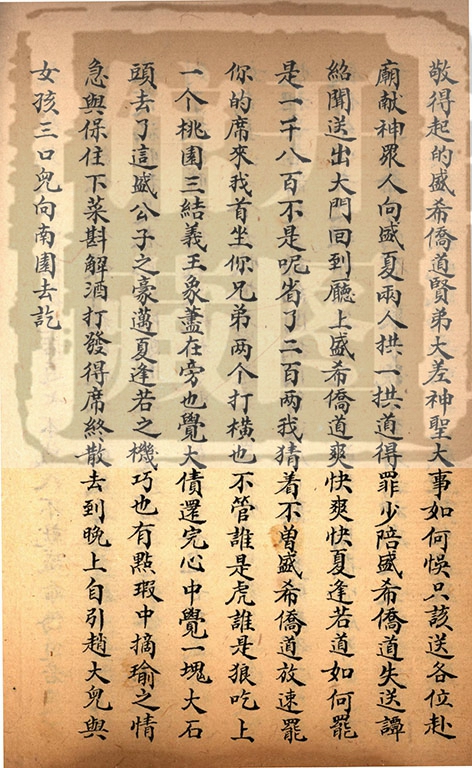 敬得起的盛希僑道賢弟大差神聖大事如何悞只該送各位赴
廟献神眾人向盛夏兩人拱一拱道得罪少陪盛希僑道失送譚
紹聞送出大門回到廳上盛希僑道爽快爽快夏逢若道如何罷
是一千八百不是呢省了二百兩我猜着不曽盛希僑道放速罷
你的席來我首坐你兄弟两个打橫也不管誰是虎誰是狼吃上
一个桃園三結義王象藎在旁也覺大債還完心中覺一塊大石
頭去了這盛公子之豪邁夏逢若之機巧也有點瑕中摘瑜之情
急與保住下菜斟解酒打發得席終散去到晚上自引趙大兒與
女孩三口兒向南園去訖